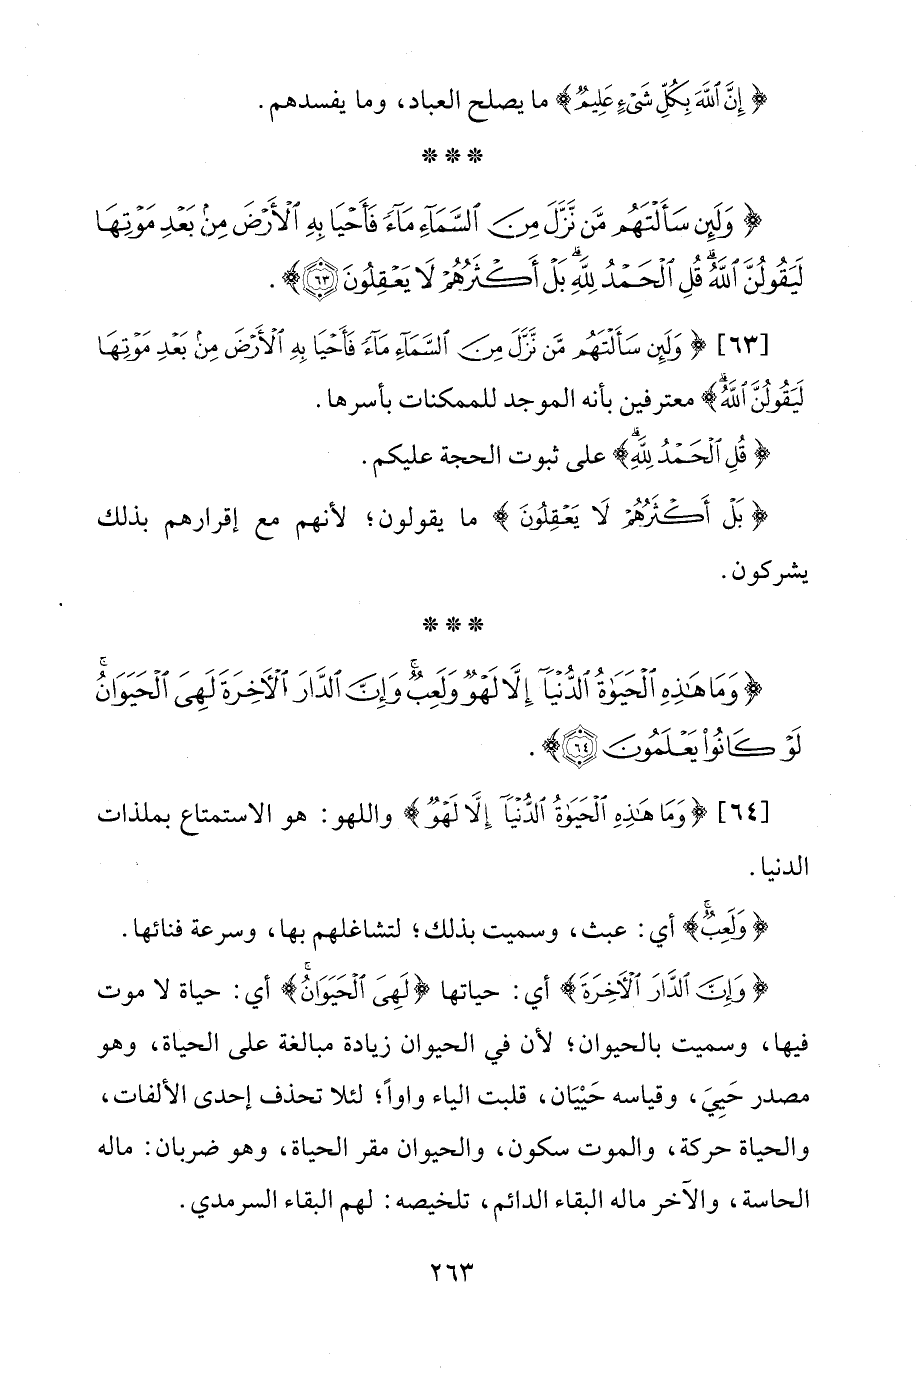 ﴿إِنَّ ٱللَّهَ بِكُلِّ شَىْءٍ عَلِيمٌ﴾ ما يصلح العباد، وما يفسدهم.
* * *
﴿وَلَئِن سَأَلْتَهُم مَّن نَّزَّلَ مِنَ ٱلسَّمَآءِ مَآءً فَأَحْيَا بِهِ ٱلْأَرْضَ مِنۢ بَعْدِ مَوْتِهَا
لَيَقُولُنَّ ٱللَّهُ ۚ قُلِ ٱلْحَمْدُ لِلَّهِ ۚ بَلْ أَكْثَرُهُمْ لَا يَعْقِلُونَ ٦٣﴾.
[٦٣] ﴿وَلَئِن سَأَلْتَهُم مَّن نَّزَّلَ مِنَ ٱلسَّمَآءِ مَآءً فَأَحْيَا بِهِ ٱلْأَرْضَ مِنۢ بَعْدِ مَوْتِهَا
لَيَقُولُنَّ ٱللَّهُ ۚ﴾ معترفين بأنه الموجد للممكنات بأسرها.
﴿قُلِ ٱلْحَمْدُ لِلَّهِ ۚ﴾ على ثبوت الحجة عليكم.
﴿بَلْ أَكْثَرُهُمْ لَا يَعْقِلُونَ﴾ ما يقولون؛ لأنهم مع إقرارهم بذلك
يشركون.
* * *
﴿وَمَا هَٰذِهِ ٱلْحَيَوٰةُ ٱلدُّنْيَآ إِلَّا لَهْوٌ وَلَعِبٌ ۚ وَإِنَّ ٱلدَّارَ ٱلْأَخِرَةَ لَهِىَ ٱلْحَيَوَانُ ۚ
لَوْ كَانُوا۟ يَعْلَمُونَ ٦٤﴾.
[٦٤] ﴿وَمَا هَٰذِهِ ٱلْحَيَوٰةُ ٱلدُّنْيَآ إِلَّا لَهْوٌ﴾ واللهو: هو الاستمتاع بملذات
الدنيا.
﴿وَلَعِبٌ ۚ﴾ أي: عبث، وسميت بذلك؛ لتشاغلهم بها، وسرعة فنائها.
﴿وَإِنَّ ٱلدَّارَ ٱلْأَخِرَةَ﴾ أي: حياتها ﴿لَهِىَ ٱلْحَيَوَانُ ۚ﴾ أي: حياة لا موت
فيها، وسميت بالحيوان؛ لأن في الحيوان زيادة مبالغة على الحياة، وهو
مصدر حَيِيَ، وقياسه حَيْيَان، قلبت الياء واواً؛ لئلا تحذف إحدى الألفات،
والحياة حركة، والموت سكون، والحيوان مقر الحياة، وهو ضربان: ماله
الحاسة، والآخر ماله البقاء الدائم، تلخيصه: لهم البقاء السرمدي.
٢٦٣